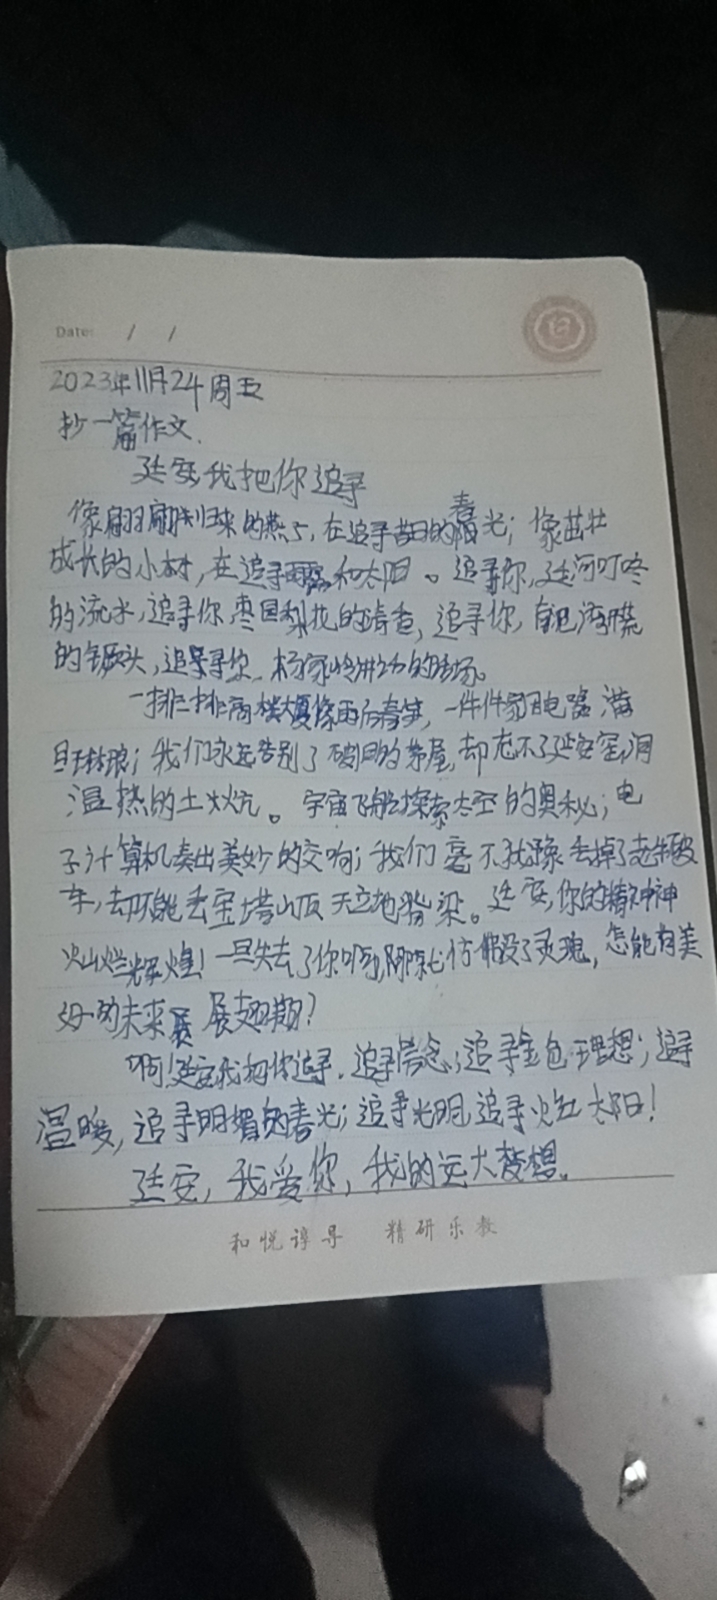 Date: / /
2023年11月24周五
抄一篇作文.
延安我把你追寻
像翩翩归来的燕子,在追寻昔日的春光;像茁壮
成长的小树,在追寻雨露和太阳。追寻你,延河叮咚
的流水,追寻你枣园梨花的清香,追寻你,南泥湾开荒
的镢头,追寻你 杨家岭讲话的会场。
一排排高楼大厦像雨后春笋,一件件家用电器满
目琳琅;我们永远告别了破旧的茅屋,却忘不了延安窑洞
温热的土炕。宇宙飞船探索太空的奥秘;电
子计算机奏出美妙的交响;我们毫不犹豫丢掉了老牛破
车,却不能丢宝塔山顶天立地脊梁。延安,你的精神
灿烂辉煌!一旦失去了你啊,那就仿假没了灵魂,怎能有美
好的未来展翅翔?
啊!延安我把你追寻,追寻信念;追寻金色理想;追寻
温暖,追寻明媚的春光;追寻光明,追寻火红太阳!
延安,我爱你,我的远大梦想。
和悦谆导 精研乐教